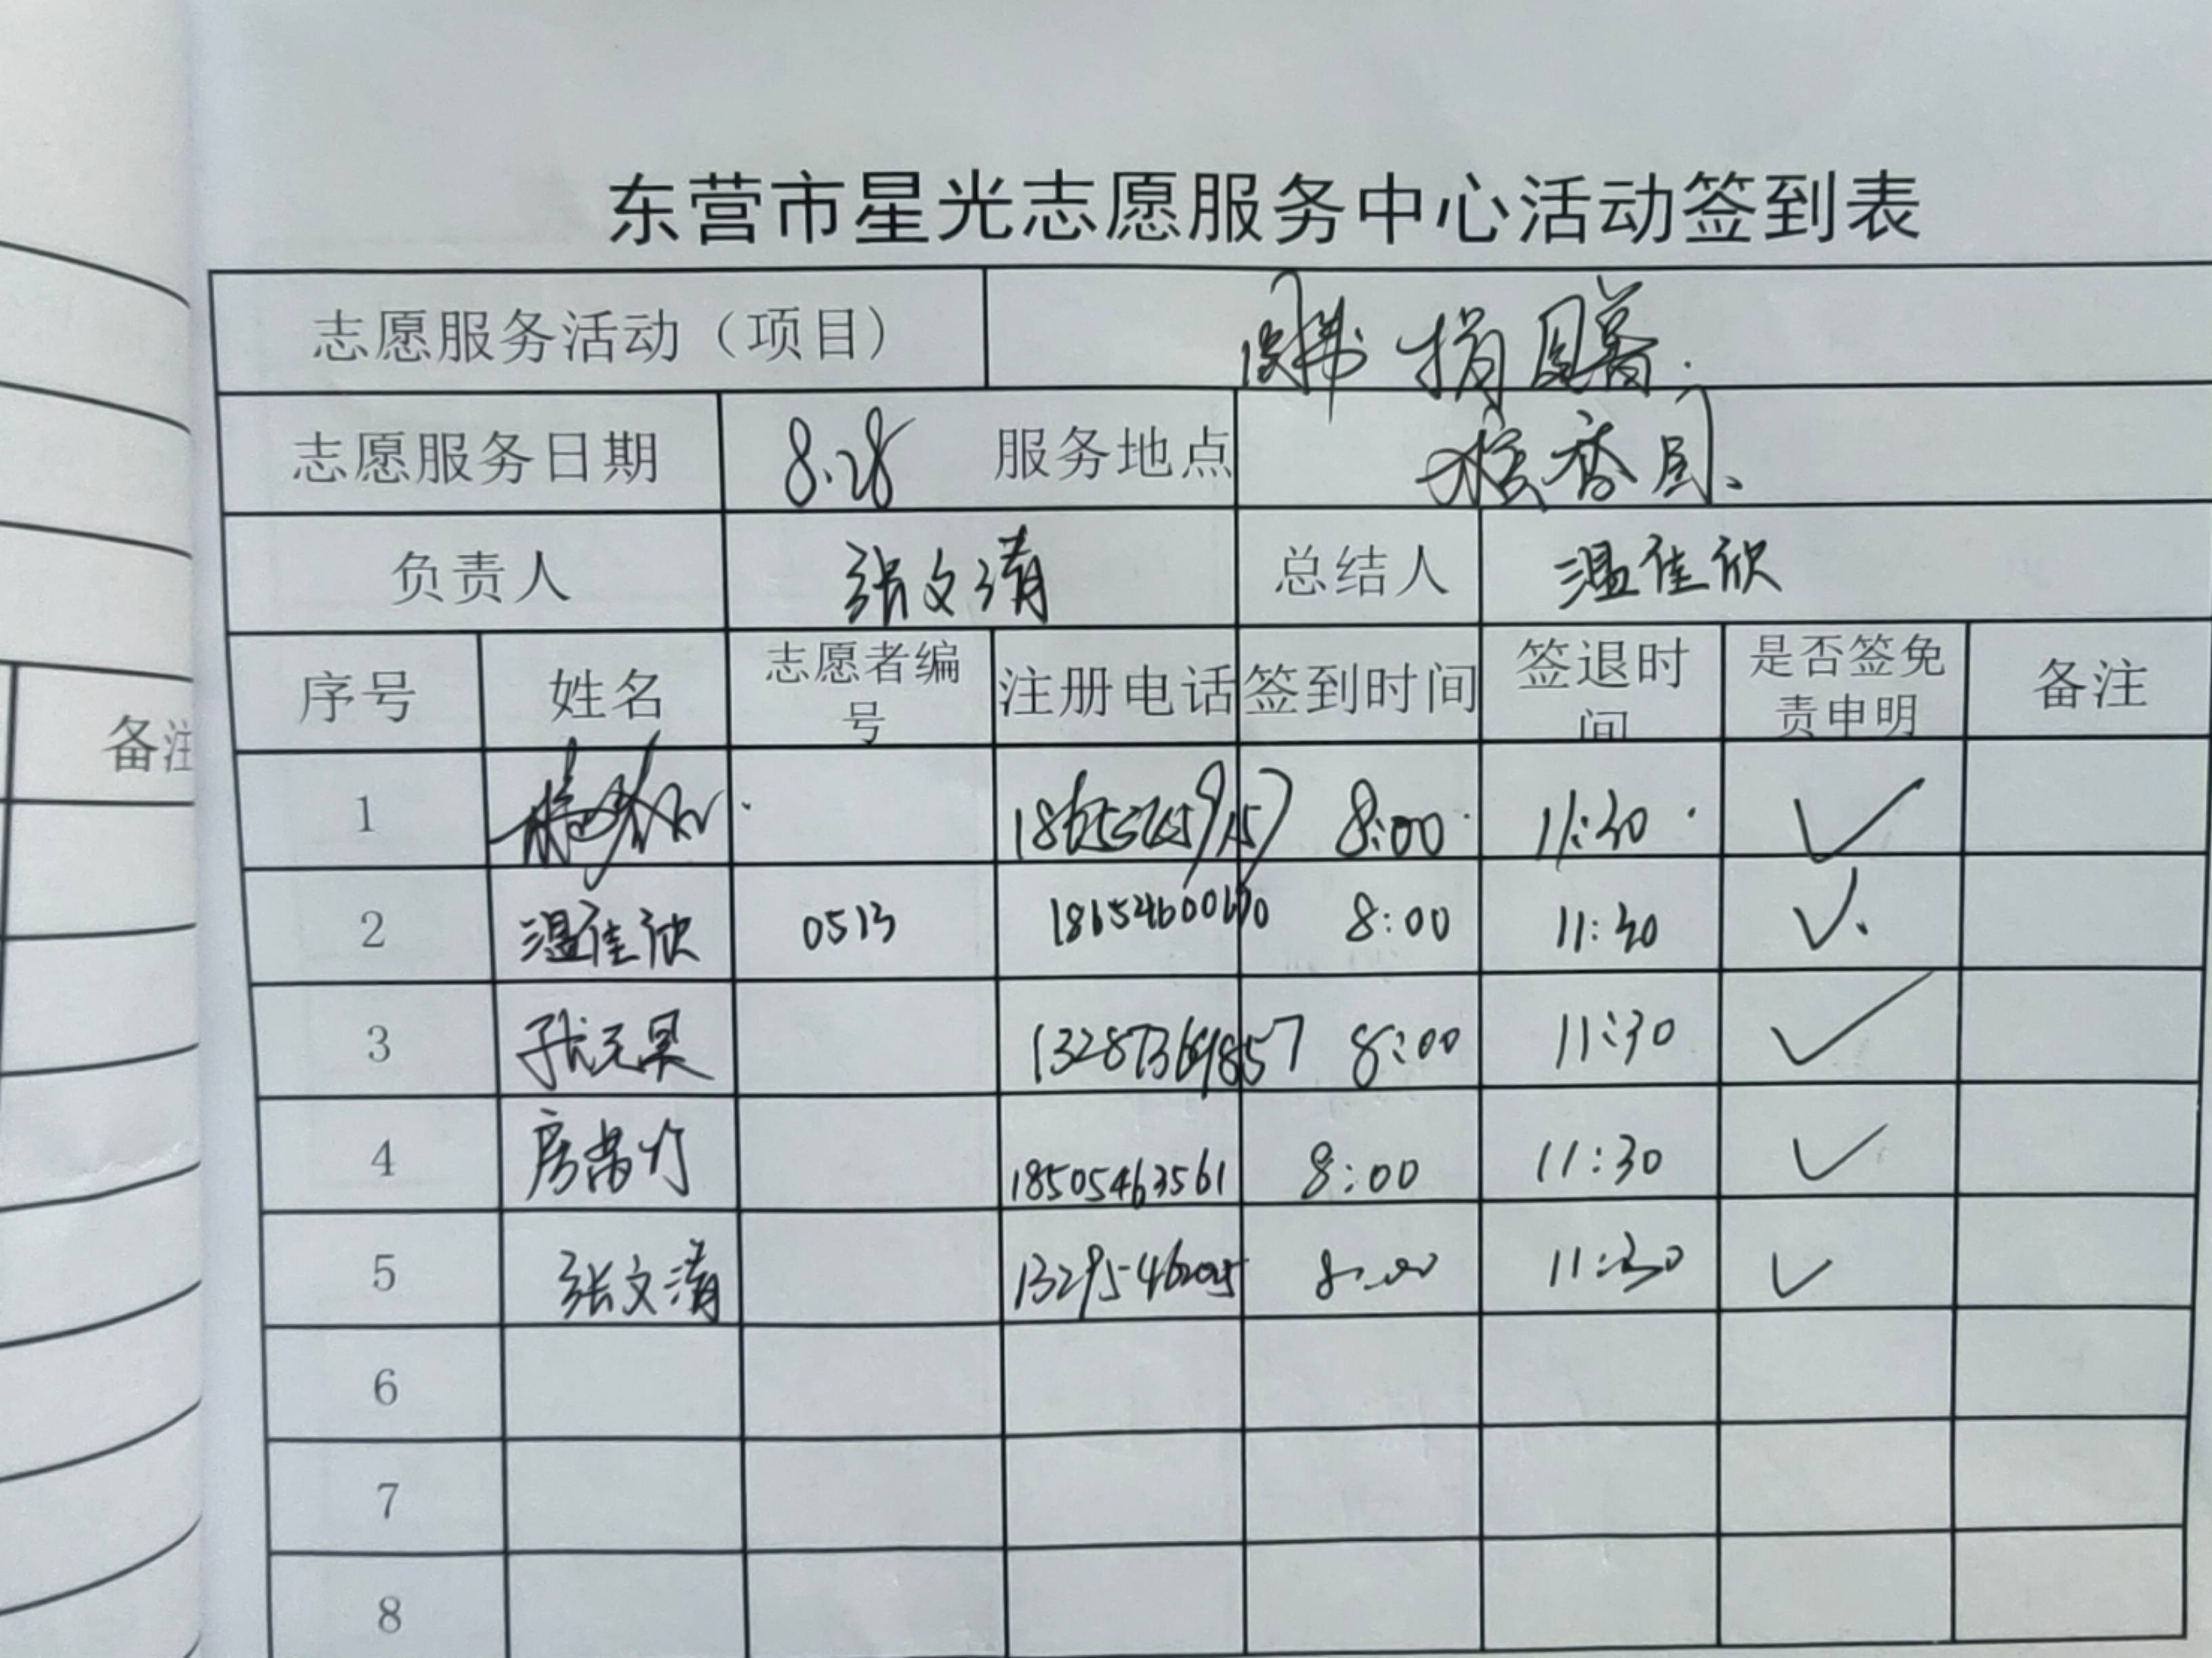 东营市星光志愿服务中心活动签到表
志愿服务活动（项目）
志愿服务日期 8.28 服务地点
负责人 张文清 总结人 温佳欣
序号 姓名 志愿者编号 注册电话 签到时间 签退时间 是否签免责申明 备注
备注
1 8:00 11:30 ✓
2 温佳欣 0513 8:00 11:30 ✓
3 13287369857 8:00 11:30 ✓
4 18505463561 8:00 11:30 ✓
5 张文清 8:00 11:30 ✓
6
7
8